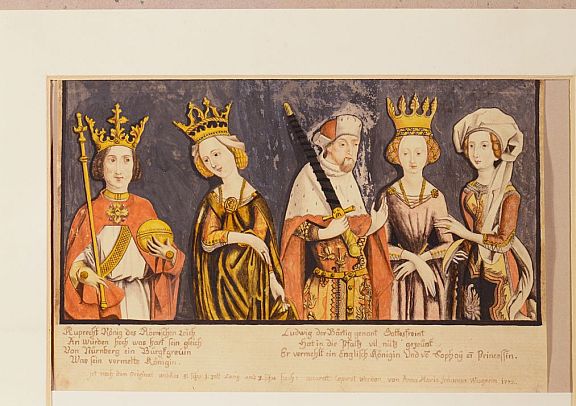 Ruprecht König des Römischen reich
An Würden hoch was hart sein gleich
Von Nürnberg ein Burggrevin
War sein vermelte Königin.
Ludwig der Bärtig genant
Hat in die Pfaltz vil nütz
Er vermehlt ein Englisch Königin Und Princessin.
ist nach dem Original 1. Zoll Lang und 2. hoch: Copirt worden von Anna Maria Johanna Wisgerin 1772.